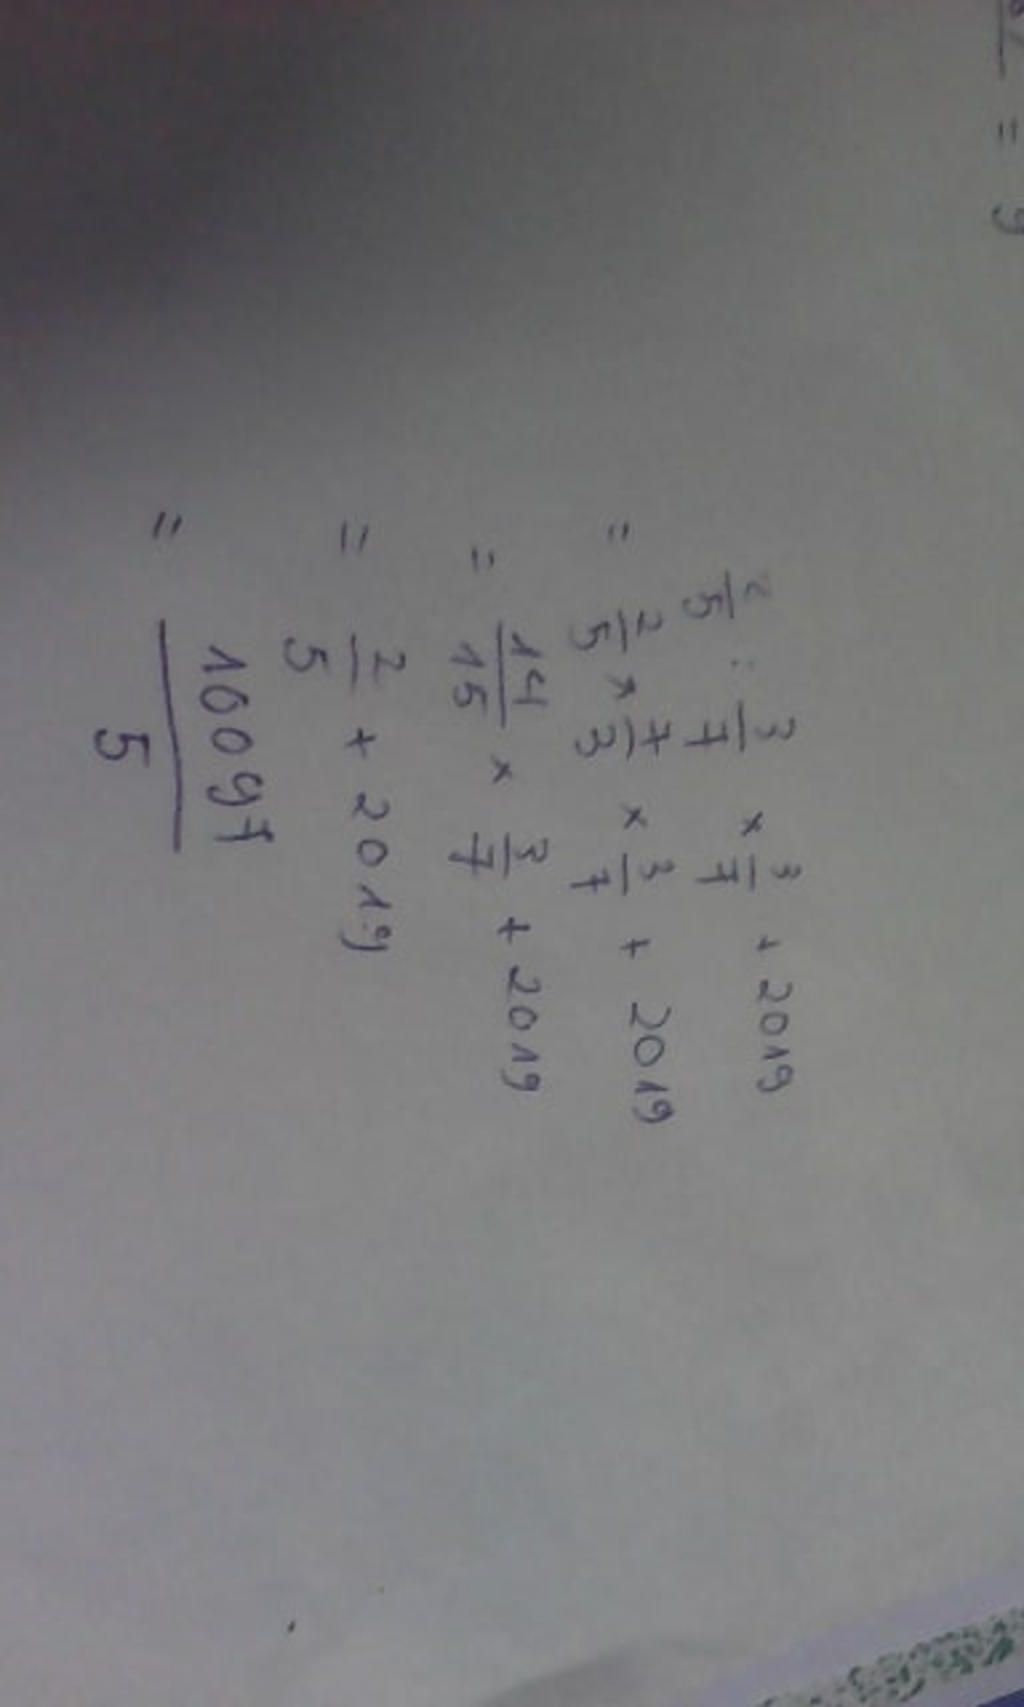 = 9
2/5 : 3/7 × 3/7 + 2019
= 2/5 × 7/3 × 3/7 + 2019
= 14/15 × 3/7 + 2019
= 2/5 + 2019
= 10097/5